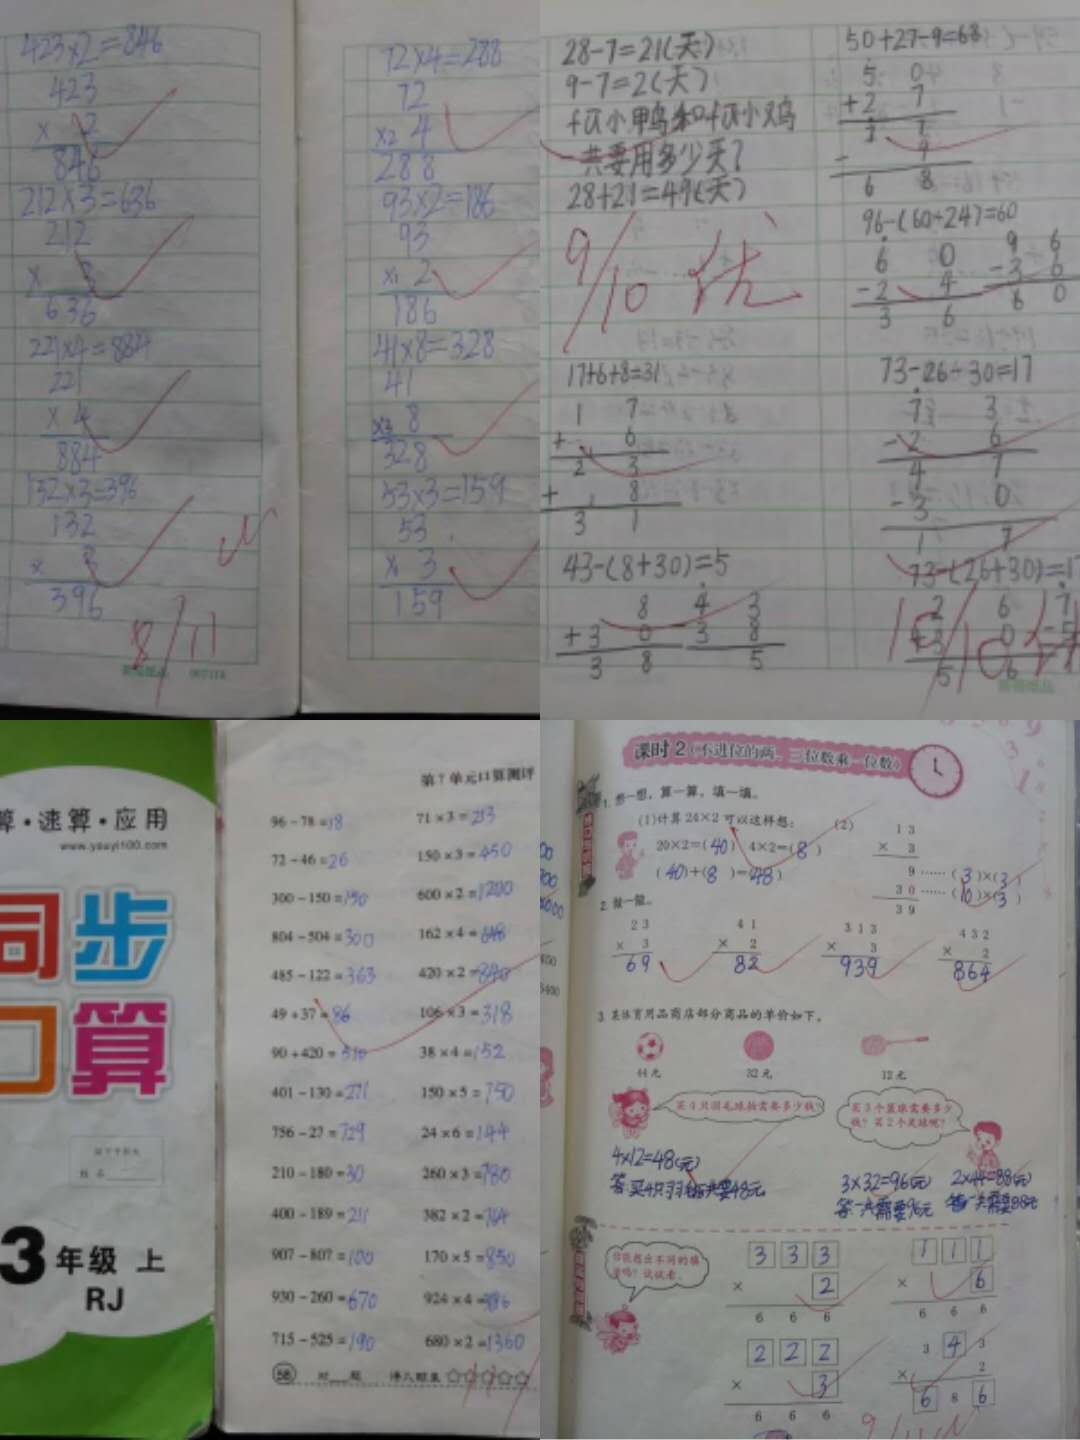 423×2=846
423
× 2
846
212×3=636
212
× 3
636
221×4=884
221
× 4
884
132×3=396
132
× 3
396
8/11
72×4=288
72
×2 4
288
93×2=186
93
×1 2
186
41×8=328
41
8
328
53×3=159
53
3
159
28-7=21(天)
9-7=2(天)
28+21=49(天)
9/10 优
17+6+8=31
1 7
+ 6
2 3
+ 8
3 1
43-(8+30)=5
8 4 3
+3 0 3 8
3 8 5
50+27-9=68
5 0
+2 7
- 9
6 8
6 0 9 6
-2 4 -3 6
3 6 6 0
73-26-30=17
7 3
-2 6
4 7
-3 0
1 7
73-(26+30)=17
算·速算·应用
www.youyi100.com
同步
口算
3年级 上
RJ
第7单元口算测评
96-78=18 71×3=213
72-46=26 150×3=450
300-150=150 600×2=1200
804-504=300 162×4=648
485-122=363 420×2=840
49+37=86 106×3=318
90+420=510 38×4=152
401-130=271 150×5=750
756-27=729 24×6=144
210-180=30 260×3=780
400-189=211 382×2=764
907-807=100 170×5=850
930-260=670 924×4=
715-525=190 680×2=1360
58 对__题
课时2(不进位的两、三位数乘一位数)
1.想一想，算一算，填一填。
(1)计算24×2可以这样想： (2) 1 3
20×2=(40) 4×2=(8) × 3
(40)+(8)=(48) 9……(3)×(3)
3 0……(10)×(3)
3 9
2.做一做。
2 3 4 1 3 1 3 4 3 2
× 3 × 2 × 3 × 2
69 82 939 864
3.某体育用品商店部分商品的单价如下。
44元 32元 12元
买4只羽毛球拍需要多少钱？
买3个篮球需要多少
钱？买2个足球呢？
4×12=48(元)
3×32=96(元) 2×44=88(元)
答:一共需要96元
3 3 3 1 1 1
× 2 × 6
6 6 6 6 6 6
2 2 2 3 4 3
× 3 × 2
6 6 6 6 8 6